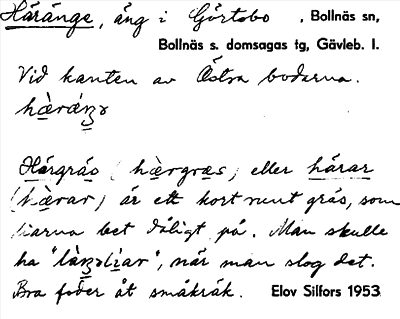 Häränge, äng i Görtsbo , Bollnäs sn,
Bollnäs s. domsagas tg, Gävleb. l.
Vid kanten av Östra bodarna.
hæ̀rǽnʒə
Härgräs (hæ̀rgræs) eller härar
(hæ̀rar) är ett kort runt gräs, som
liarna bet dåligt på. Man skulle
ha "làŋʒəliar", när man slog det.
Bra foder åt småkräk. Elov Silfors 1953